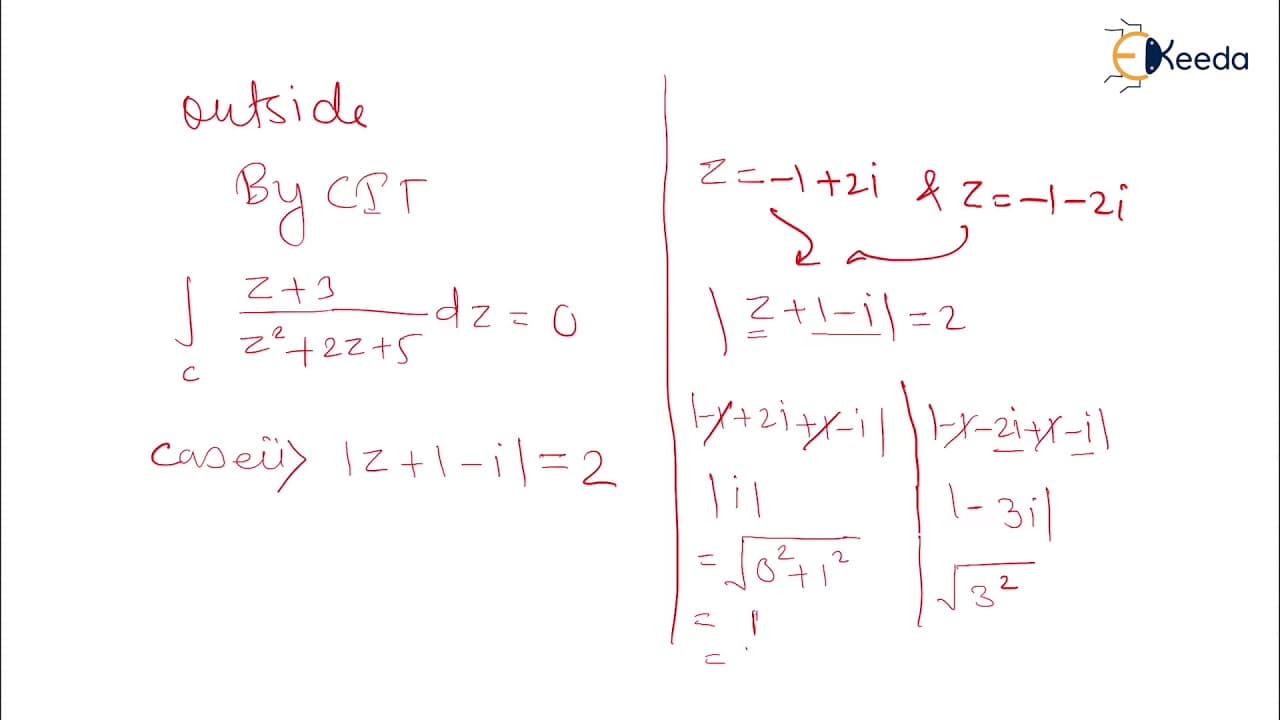 EKeeda
outside
By CIT
∫_C (z+3)/(z²+2z+5) dz = 0
case ii> |z+1-i| = 2
z = -1+2i & z = -1-2i
|z+1-i| = 2
|-1+2i+1-i|
|i|
= √(0²+1²)
= 1
=
|-1-2i+1-i|
|-3i|
√3²